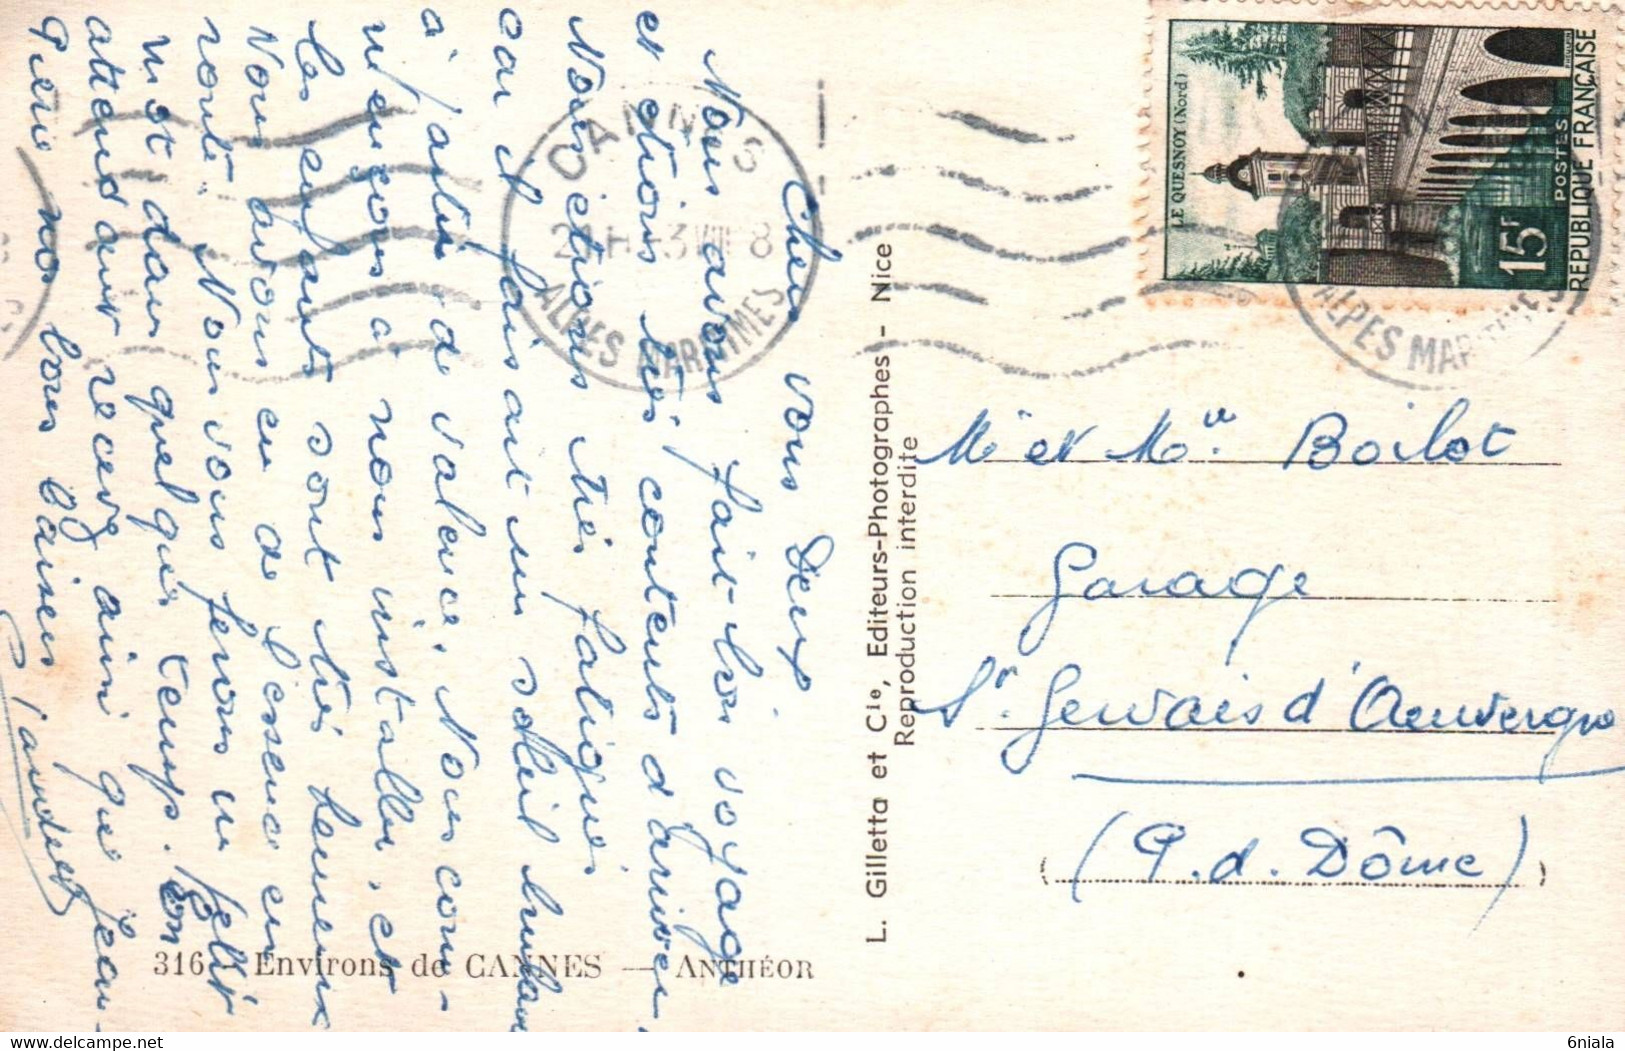 Chers vous Deux
Nous avons fait bon voyage
et étions très contents d'arriver,
Nous étions très fatigués
car il faisait un soleil brulant
à partir de Valence. Nous com-
mençons à nous installer, et
les enfants sont très heureux
Nous avons eu de l'essence en
route. Nous vous ferons un petit
mot dans quelques temps. En
attendant recevez ainsi que Jean-
Pierre nos bons baisers
316 Environs de CANNES — ANTHÉOR
L. Gilletta et Cie, Editeurs-Photographes - Nice
Reproduction interdite
CANNES
21H -3 VIII 8
ALPES MARITIMES
LE QUESNOY (Nord)
15F
POSTES
REPUBLIQUE FRANÇAISE
ALPES MARITIMES
Mr et Mme Boilot
Garage
St Gervais d'Auvergne
(P. d. Dôme)
6niala